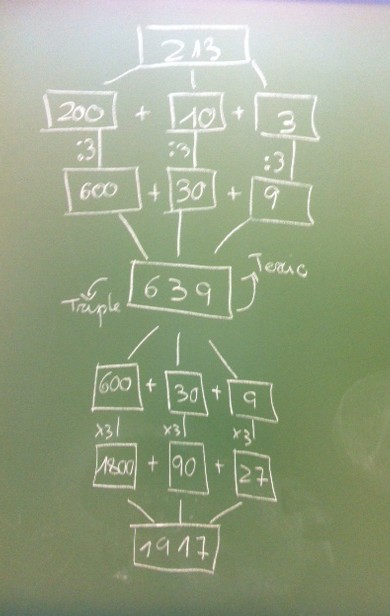 213
200 + 10 + 3
:3 :3 :3
600 + 30 + 9
Tercio
639
Triple
600 + 30 + 9
x3 x3 x3
1800 + 90 + 27
1917